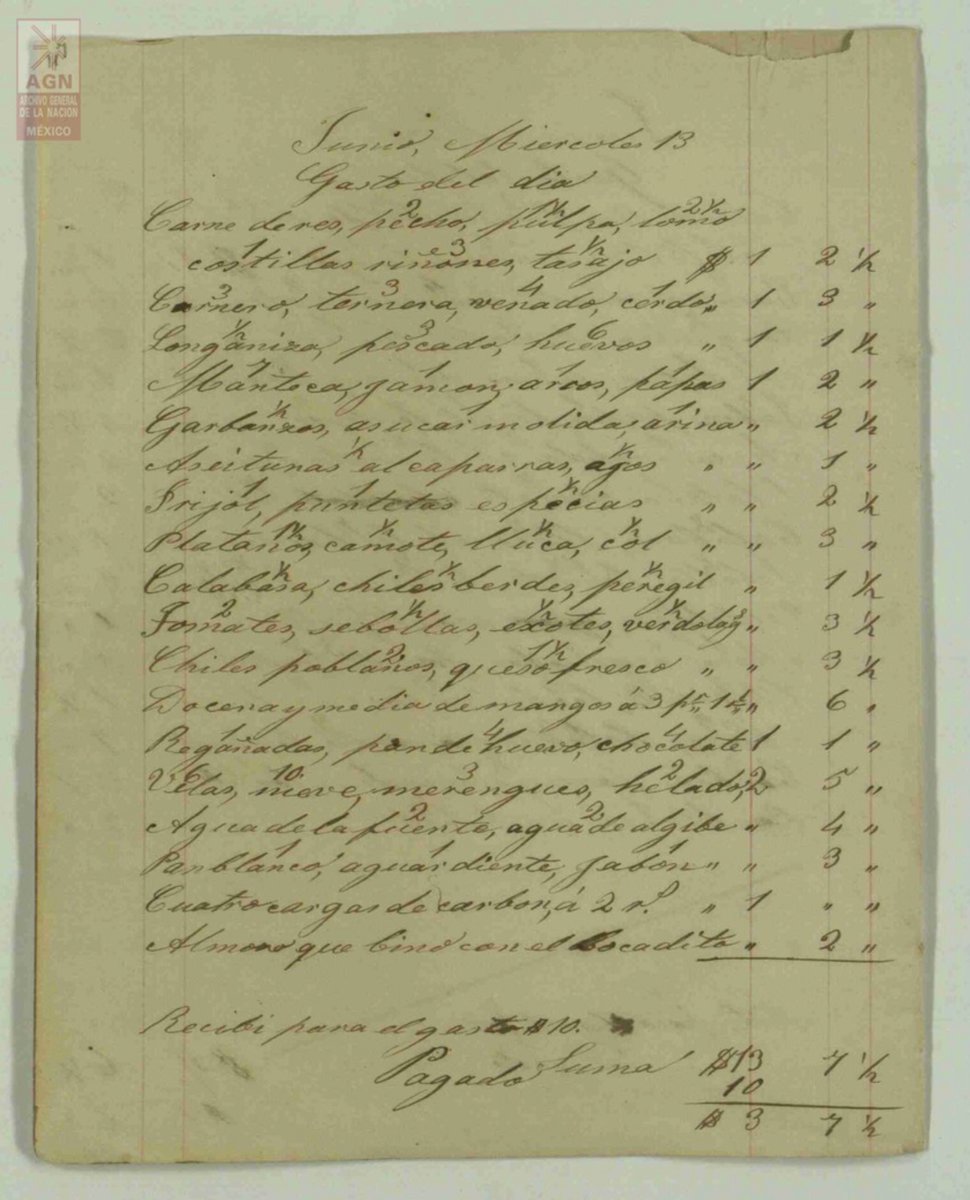 AGN
ARCHIVO GENERAL
DE LA NACION
MÉXICO
Junio, Miercoles 13
Gasto del dia
Carne de res, pecho, 2 pulpa, 1½ lomo 2½
costillas 1 riñones, 3 tasajo ½ $ 1 2 ½
Carnero, 3 ternera, 3 venado, 4 cerdo, „ 1 3 „
Longaniza, ½ pescado, 3 huevos 6 „ 1 1 ½
Manteca, 7 jamon, 1 arros, 1 papas 1 1 2 „
Garbanzos, ½ asucar molida, 1 arina 1 „ 2 ½
Aseitunas ½ alcaparras, ajos ½ „ „ 1 „
Frijol, 1 puntetas 1 especias ½ „ „ 2 ½
Platanos, 1½ camote, ½ lluca, ½ col ½ „ „ 3 „
Calabasa, ½ chiles ½ berdes, peregil ½ „ 1 ½
Tomates, 2 sebollas, ½ exotes, ½ verdolags ½ „ 3 ½
Chiles poblanos, 2 queso 1½ fresco „ „ 3 ½
Docena y media de mangos á 3 pr 1 ½ „ 6 „
Regañadas, 1 pan de 4 huevo, chocolate 4 1 1 „
Velas, 6 nieve, 10 merengues, 3 helado, 2 2 5 „
Agua de la fuente, 2 agua 2 de algibe „ 4 „
Pan blanco, 1 aguardiente, 1 jabón 1 „ „ 3 „
Cuatro cargas de carbon, á 2 r.s „ 1 „ „
Al moso que bino con el bocadito „ 2 „
Recibi para el gasto $ 10.
Suma $13 7 ½
Pagado 10
$ 3 7 ½